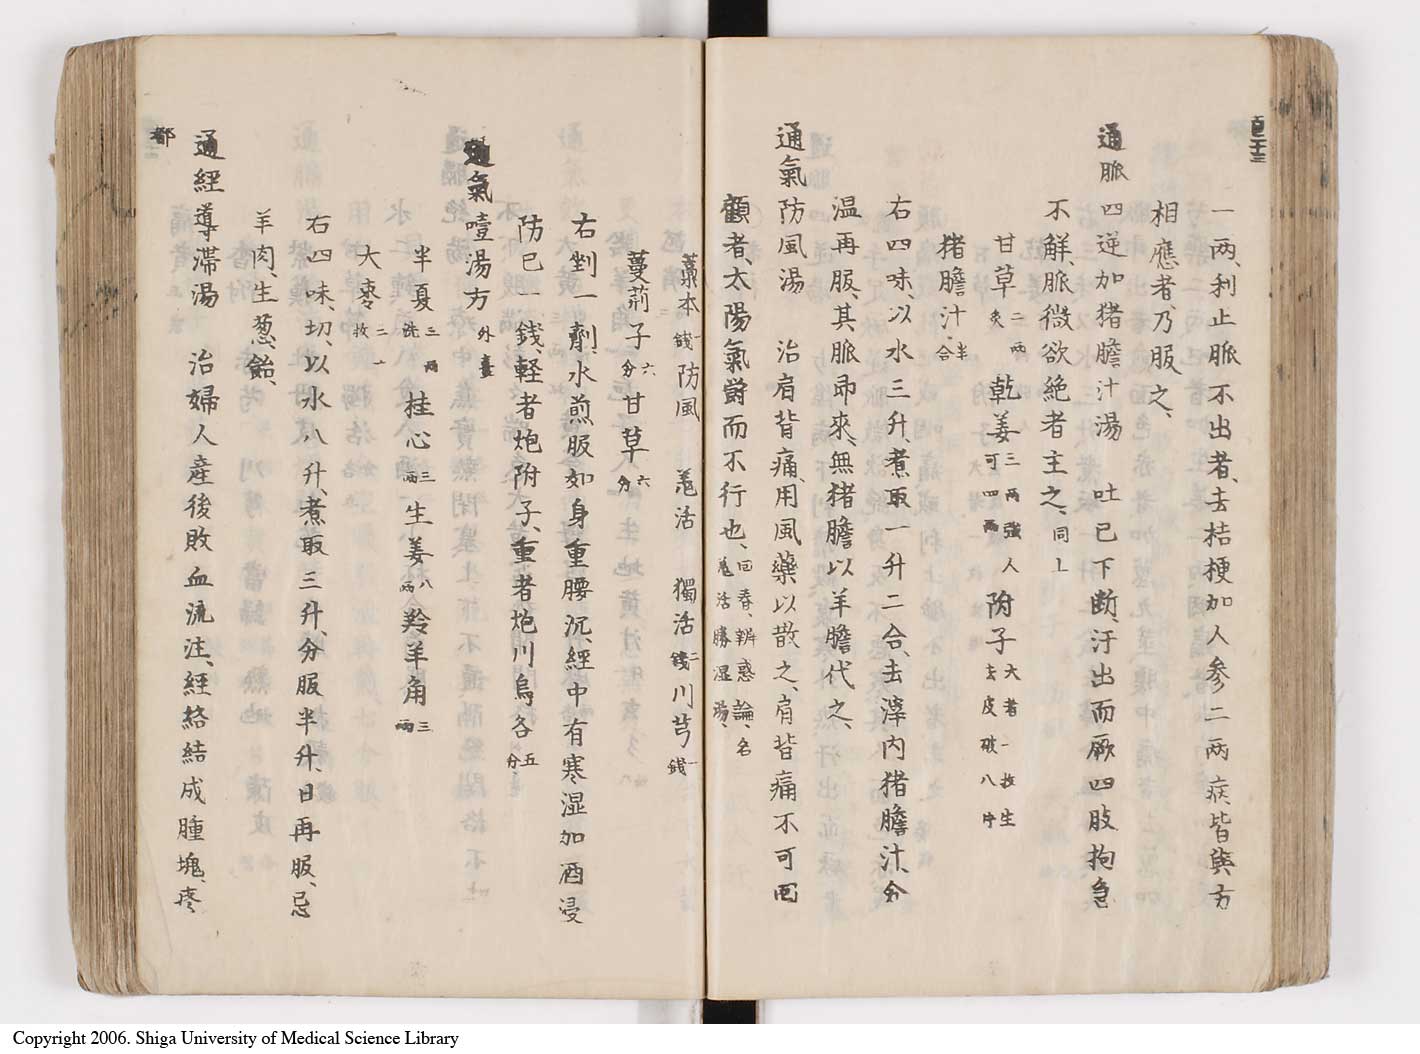 一両、利止脈不出者、去桔梗加人参二両病皆與方
相應者乃服之、
通脈四逆加猪膽汁湯 吐已下断、汗出而厥四肢拘急
不解、脈微欲絶者主之、同上
甘草炙二両 乾姜三両強人可四両 附子大者一枚生去皮破八片
猪膽汁半合
右四味、以水三升、煮取一升二合、去滓内猪膽汁、分
温再服、其脈即來、無猪膽以羊膽代之、
通氣防風湯 治肩背痛、用風藥以散之、肩背痛不可回
顧者、太陽氣欝而不行也、回春、辨惑論、名羗活勝湿湯、
藁本一錢防風 羗活 獨活二錢川芎一錢
蔓荊子六分甘草六分
右剉一劑、水煎服如身重腰沉、經中有寒湿加酒浸
防已一錢、軽者炮附子、重者炮川烏各五分
通氣噎湯方 外臺
半夏三両洗桂心三両生姜八両羚羊角三両
大棗三十一枚
右四味、切、以水八升、煮取三升、分服半升、日再服、忌
羊肉、生葱、飴、
通經導滞湯 治婦人産後敗血流注、經絡結成腫塊、疼
都
Copyright 2006. Shiga University of Medical Science Library